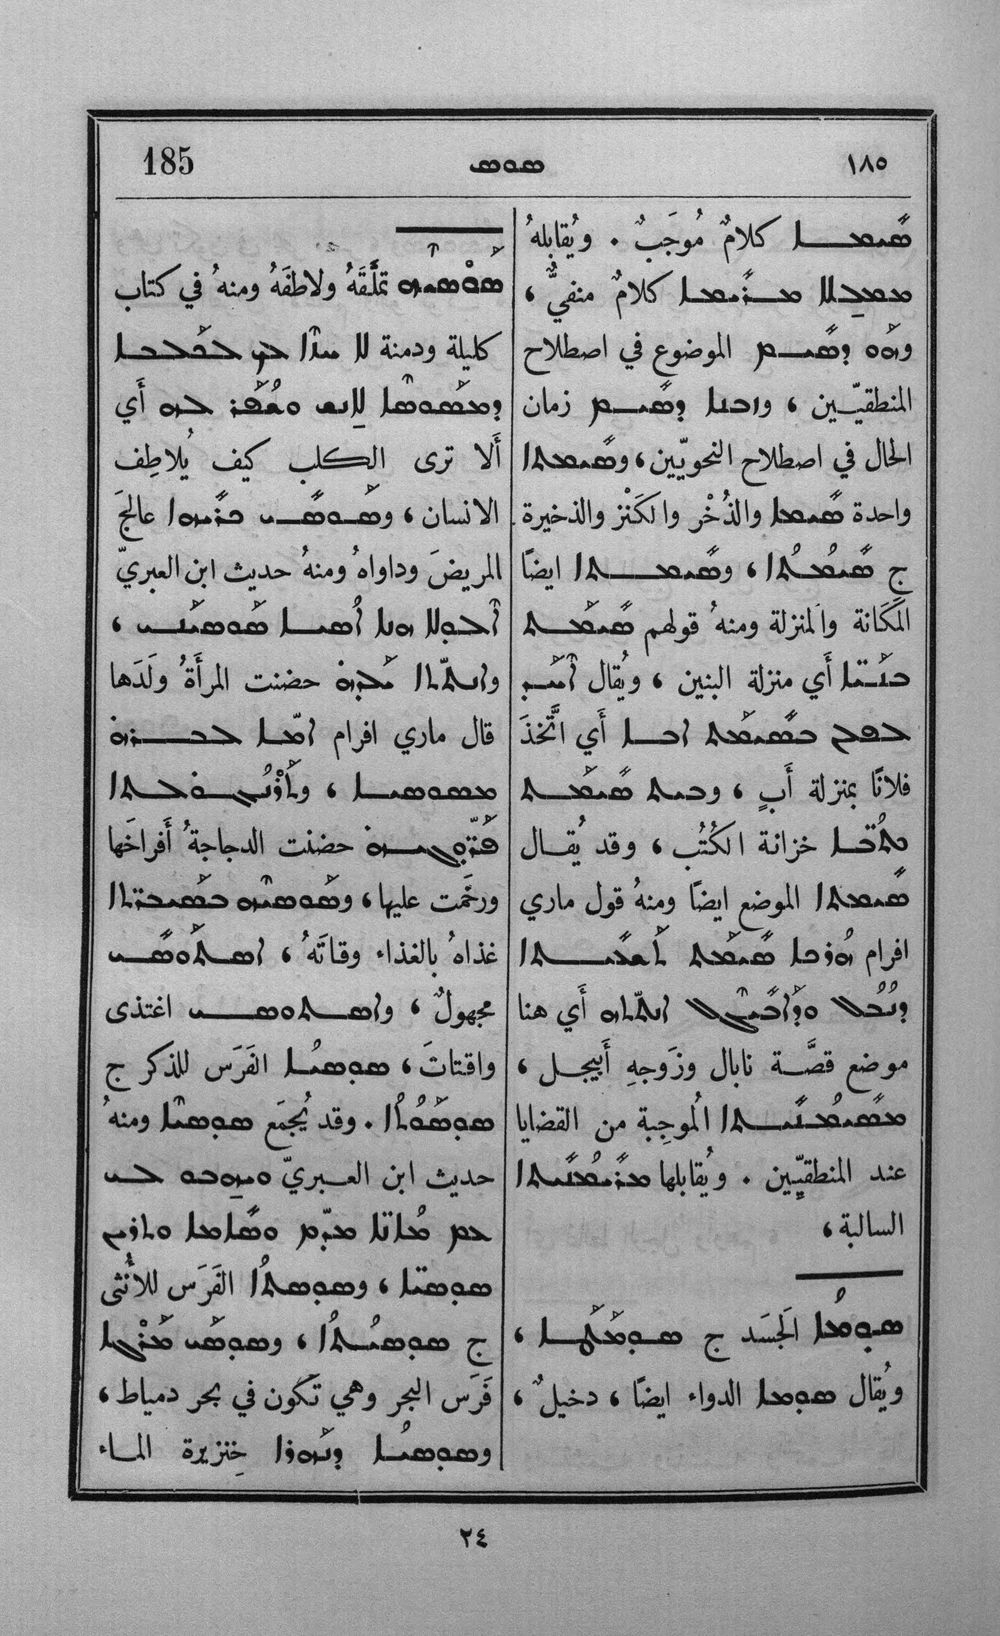 185 ܣܘܣ ١٨٥
ܣܝܡܐ كلامٌ مُوجَبٌ . ويُقابلهُ
ܡܡܠܠܐ ܡܪܝܡܐ كلامٌ منفيٌّ ،
ܘܗܘ ܕܣܝܡ الموضوع في اصطلاح
المنطقيّين ، ܘܙܒܢܐ ܕܣܝܡ زمان
الحال في اصطلاح النحويّين ، ܘܣܝܡܬܐ
واحدة ܣܝܡܐ والذُخْر والكَنْز والذخيرة
ج ܣܝܡܬܐ ، ܘܣܝܡܬܐ ايضًا
المَكَانة والمنزلة ومنهُ قولهم ܣܝܡܬ
ܒܢܝܐ أَي منزلة البنين ، ويُقال
ܒܣܝܡܬ ܐܒܐ أَي اتَّخذَ
فلانًا بمنزلة أَبٍ ، ܘܒܝܬ ܣܝܡܬ
ܟܬܒܐ خزانة الكُتُب ، وقد يُقال
ܣܝܡܬܐ الموضع ايضًا ومنهُ قول ماري
افرام ܣܝܡܬ ܬܫܥܝܬܐ
ܕܢܒܠ ܘܕܐܒܝܓܝܠ ܐܢܬܬܗ أَي هنا
موضع قصَّة نابال وزَوجهِ أَبيجل ،
ܡܣܝܡܢܝܬܐ المُوجِبة من القضايا
عند المنطقيّين . ويُقابلها ܡܪܝܡܢܝܬܐ
السالبة ،
ܣܘܡܐ الجَسَد ج ܣܘܡܛܐ ،
ويُقال ܣܘܡܐ الدواء ايضًا ، دخيلٌ ،
ܣܘܣܝܗ تملَّقَهُ ولاطفَهُ ومنهُ في كتاب
كليلة ودمنة ܠܐ ܚܙܐ ܐܢܬ ܠܟܠܒܐ
ܕܡܣܘܣܐ ܠܐܢܫ ܘܫܦܪ ܠܗ أَي
أَلا ترى الكلب كيف يُلاطِف
الانسان ، ܘܣܘܣܝ ܟܪܝܗܐ عالجَ
المريضَ وداواهُ ومنهُ حديث ابن العبريّ
ܐܣܝܐ ܣܘܣܝܢܝ ،
ܘܐܢܬܬܐ ܝܠܕܗ حضنت المرأَةُ ولَدَها
قال ماري افرام ܐܡܐ ܠܒܪܗ
ܡܣܘܣܝܐ ، ܘܬܪܢܓܘܠܬܐ
ܦܪܘܓܝܗ حضنت الدجاجةُ أَفراخَها
ورخَمت عليها ، ܘܣܘܣܝܗ ܒܣܝܒܪܬܐ
غذاهُ بالغذاء وقاتَهُ ، ܐܣܬܘܣܝ
مجهولٌ ، ܘܐܣܬܘܣܝ اغتذى
واقتاتَ ، ܣܘܣܝܐ الفَرَس للذكر ج
ܣܘܣܘܬܐ . وقد يُجمَع ܣܘܣܝܐ ومنهُ
حديث ابن العبريّ ܘܝܗܒܘ ܠܝ
ܥܡ ܡܐܢܐ ܡܕܡ ܘܣܐܡܐ ܘܬܪܝܢ
ܣܘܣܝܐ ، ܘܣܘܣܬܐ الفَرَس للأُنثى
ج ܣܘܣܝܬܐ ، ܘܣܘܣ ܢܗܪܐ
فَرَس البحر وهي تكون في بحر دمياط ،
ܘܣܘܣܝܐ ܕܢܗܪܐ خِنزيرة الماء
٢٤